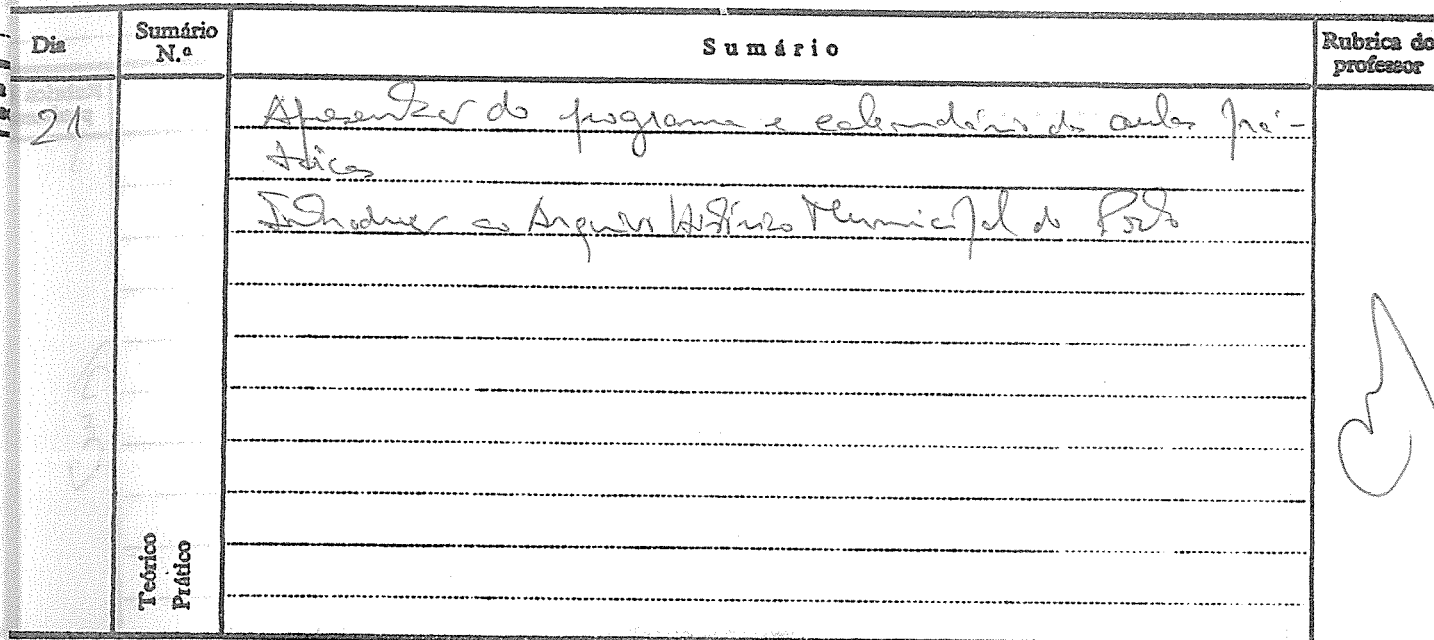 Dia
Sumário N.º
Sumário
Rubrica do professor
21
Apresentação do programa e calendário das aulas prá-
ticas
Introdução ao Arquivo Histórico Municipal do Porto
Teórico
Prático